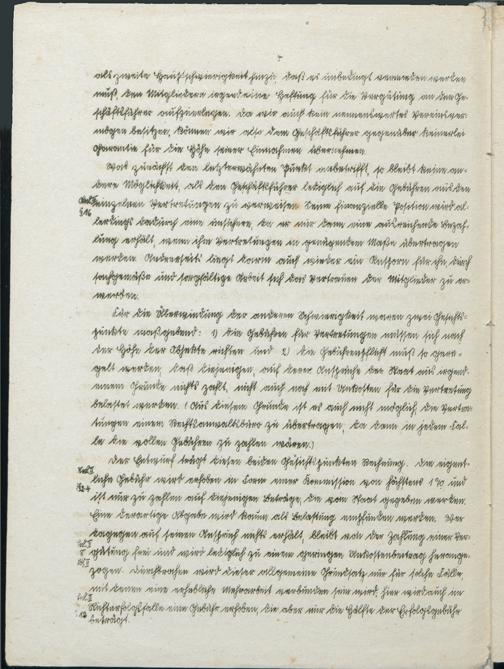 als zweite Hauptschwierigkeit hinzu, daß es unbedingt vermieden werden
muß, den Mitgliedern irgend eine Haftung für die Vergütung an den Ge-
schäftsführer aufzuerlegen. Da wir auch kein nennenswertes Vereinsver-
mögen besitzen, können wir also dem Geschäftsführer gegenüber keinerlei
Garantie für die Höhe seiner Einnahmen übernehmen.
Was zunächst den letzterwähnten Punkt anbetrifft, so bleibt keine an-
dere Möglichkeit, als den Geschäftsführer lediglich auf die Gebühren aus den
einzelnen Vertretungen zu verweisen. Seine finanzielle Position wird al-
lerdings dadurch eine unsichere, da er nur dann eine ausreichende Bezah-
lung erhält, wenn ihm Vertretungen in genügendem Maße übertragen
werden. Andererseits liegt darin auch wieder ein Ansporn für ihn, durch
sachgemäße und sorgfältige Arbeit sich das Vertrauen der Mitglieder zu er-
werben.
Für die Überwindung der anderen Schwierigkeit waren zwei Gesichts-
punkte maßgebend: 1) die Gebühren für Vertretungen müssen sich nach
der Höhe der Objekte richten und 2) die Gebührenpflicht muß so gere-
gelt werden, daß diejenigen, auf deren Ansprüche der Staat aus irgend-
einem Grunde nichts zahlt, nicht auch noch mit Unkosten für die Vertretung
belastet werden. (Aus diesem Grunde ist es auch nicht möglich, die Vertre-
tungen einem Rechtsanwaltsbüro zu übertragen, da dann in jedem Fal-
le die vollen Gebühren zu zahlen wären.)
Der Entwurf trägt diesen beiden Gesichtspunkten Rechnung. Die eigent-
liche Gebühr wird erhoben in Form einer Kommission von höchstens 1% und
ist nur zu zahlen auf diejenigen Beträge, die vom Staat gegeben werden.
Eine derartige Abgabe wird kaum als Belastung empfunden werden. Wer
dagegen auf seinen Anspruch nichts erhält, bleibt von der Zahlung einer Ver-
gütung frei und wird lediglich zu einem geringen Unkostenbeitrag herange-
zogen. Durchbrochen wird dieser allgemeine Grundsatz nur für solche Fälle,
mit denen eine erhebliche Mehrarbeit verbunden sein wird; hier wird auch im
Nichterfolgsfalle eine Gebühr erhoben, die aber nur die Hälfte der Erfolgsgebühr
beträgt.